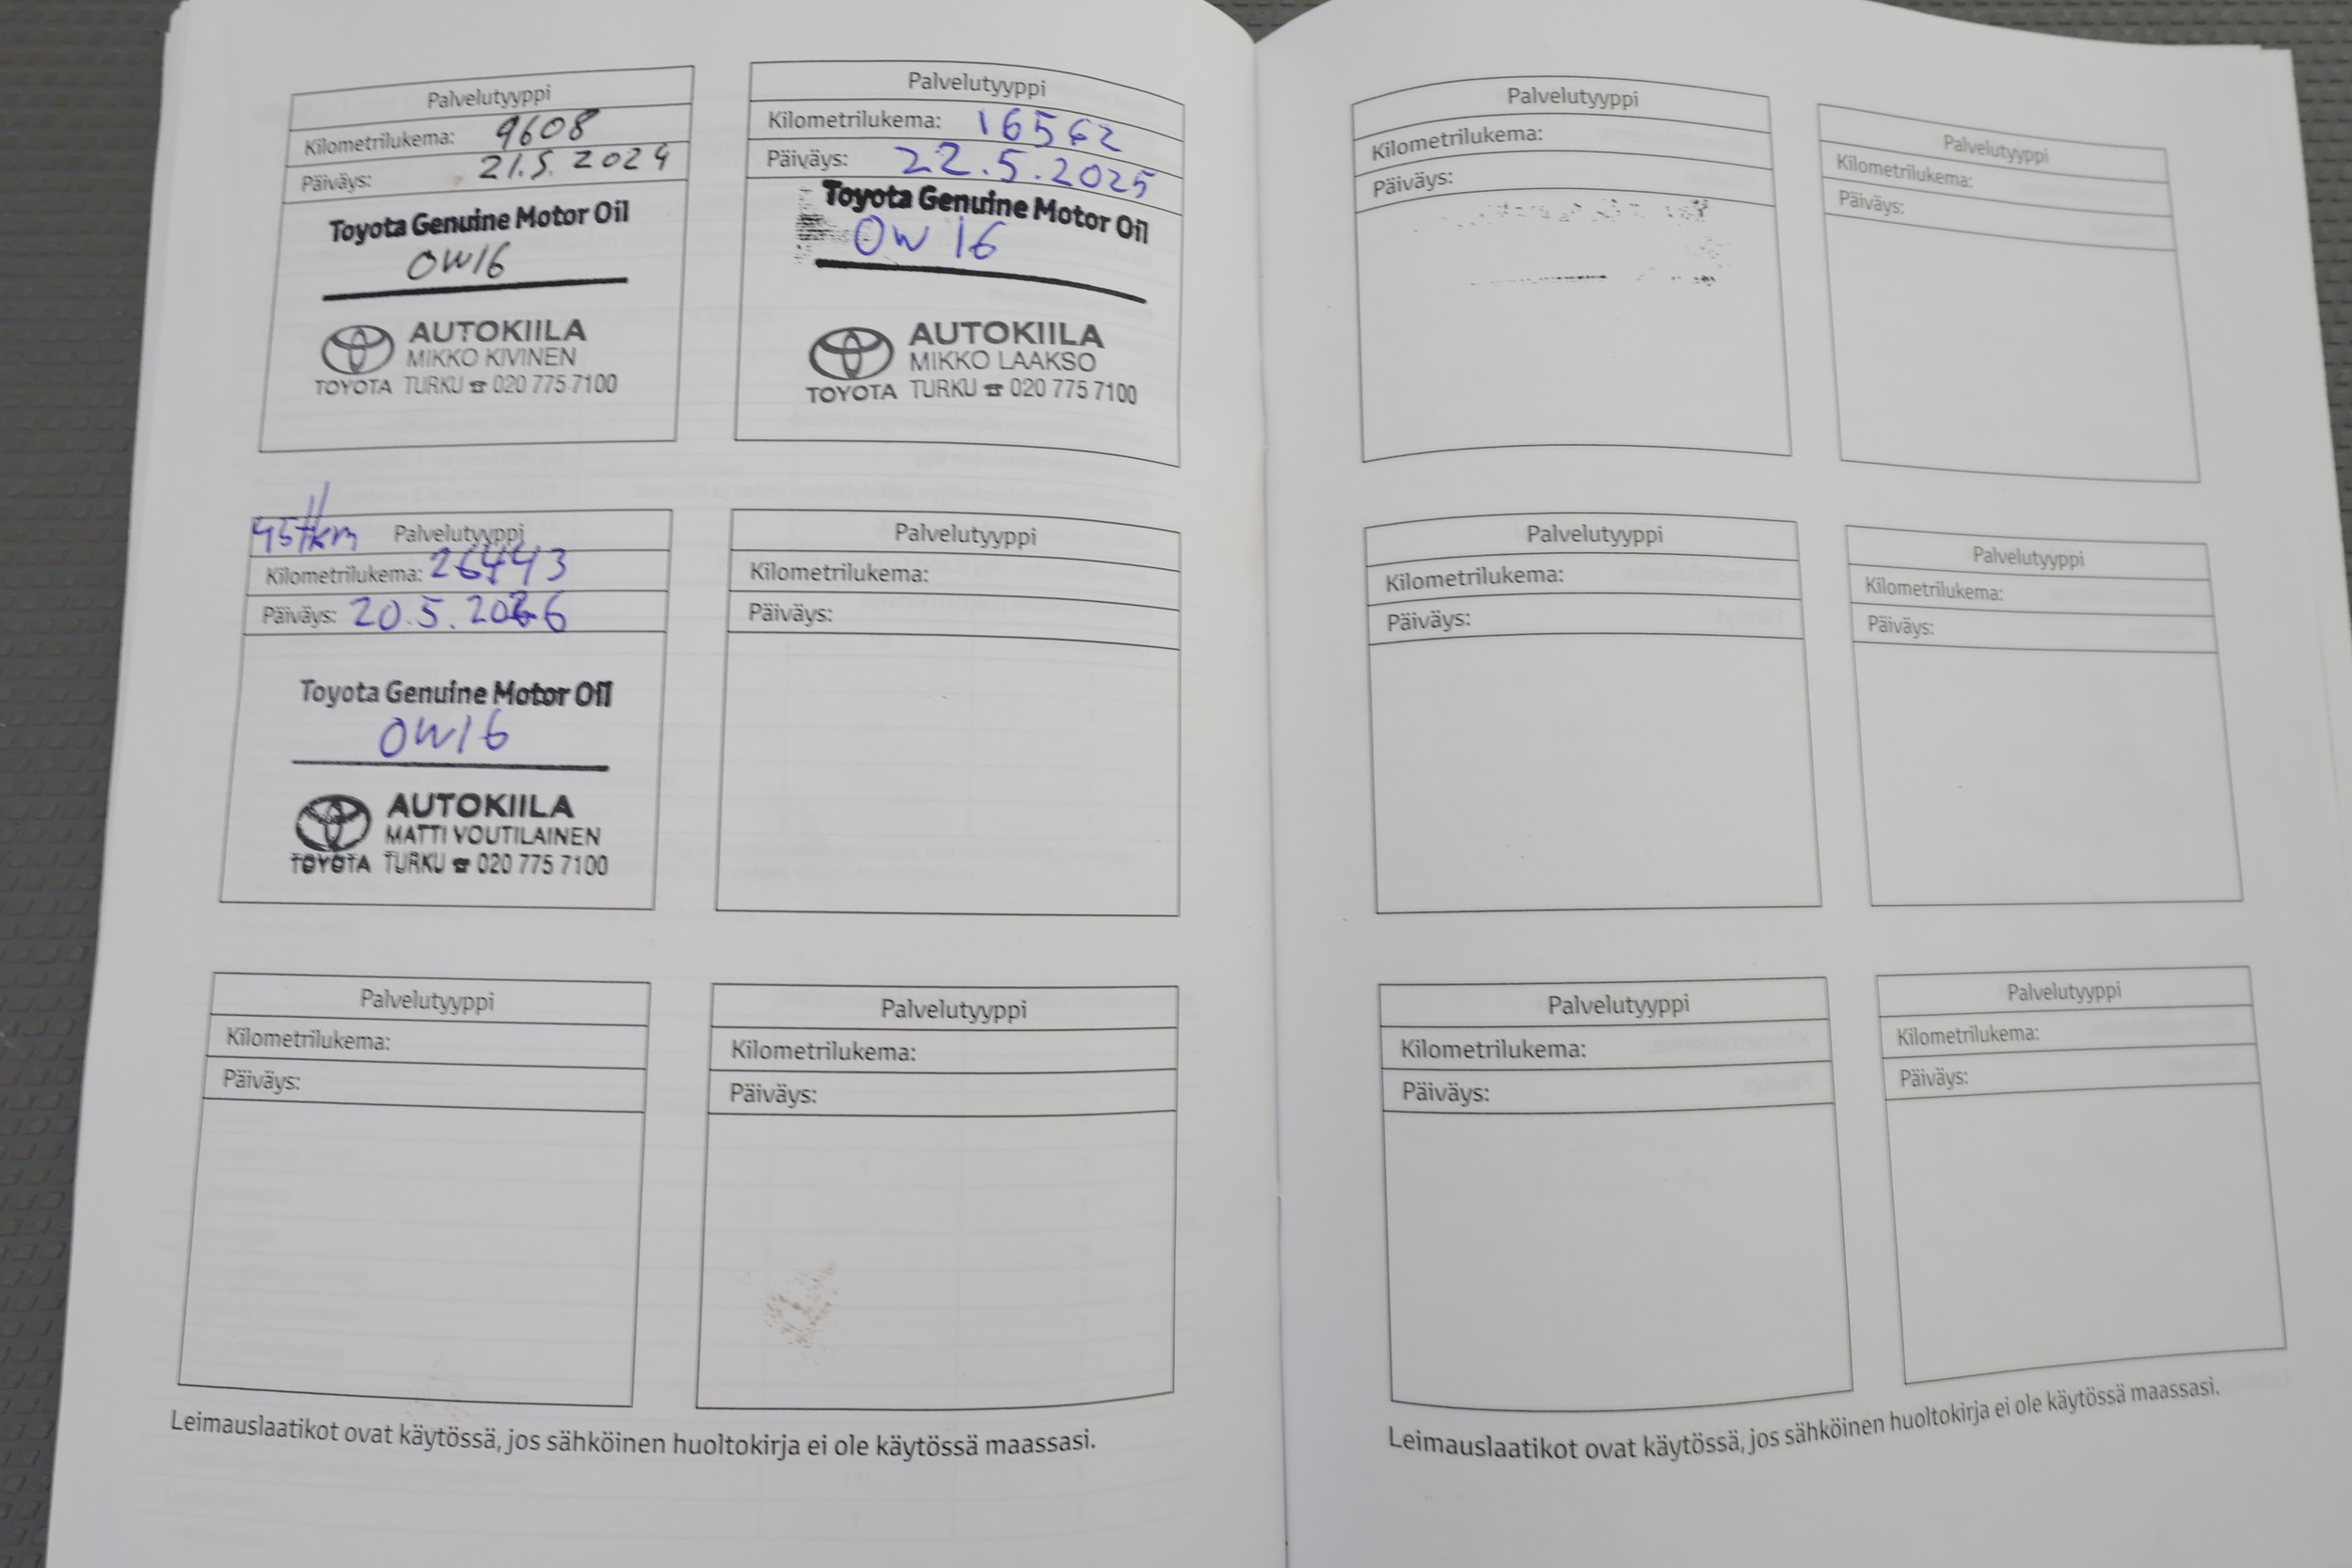 Palvelutyyppi
Kilometrilukema: 9608
Päiväys: 21.5.2024
Toyota Genuine Motor Oil
0W16
AUTOKIILA
MIKKO KIVINEN
TOYOTA TURKU ☎ 020 775 7100
Palvelutyyppi
Kilometrilukema: 16562
Päiväys: 22.5.2025
Toyota Genuine Motor Oil
0W16
AUTOKIILA
MIKKO LAAKSO
TOYOTA TURKU ☎ 020 775 7100
45tkm Palvelutyyppi
Kilometrilukema: 26443
Päiväys: 20.5.2026
Toyota Genuine Motor Oil
0W16
AUTOKIILA
MATTI VOUTILAINEN
TOYOTA TURKU ☎ 020 775 7100
Palvelutyyppi
Kilometrilukema:
Päiväys:
Palvelutyyppi
Kilometrilukema:
Päiväys:
Palvelutyyppi
Kilometrilukema:
Päiväys:
Leimauslaatikot ovat käytössä, jos sähköinen huoltokirja ei ole käytössä maassasi.
Palvelutyyppi
Kilometrilukema:
Päiväys:
Palvelutyyppi
Kilometrilukema:
Päiväys:
Palvelutyyppi
Kilometrilukema:
Päiväys:
Palvelutyyppi
Kilometrilukema:
Päiväys:
Palvelutyyppi
Kilometrilukema:
Päiväys:
Palvelutyyppi
Kilometrilukema:
Päiväys:
Leimauslaatikot ovat käytössä, jos sähköinen huoltokirja ei ole käytössä maassasi.